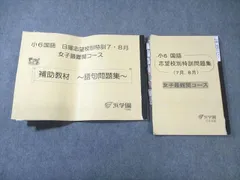 小6国語 日曜志望校別特訓7・8月
女子最難関コース
補助教材 ~語句問題集~
浜学園
小6 国語
志望校別特訓問題集
(7月、8月)
女子最難関コース
浜学園